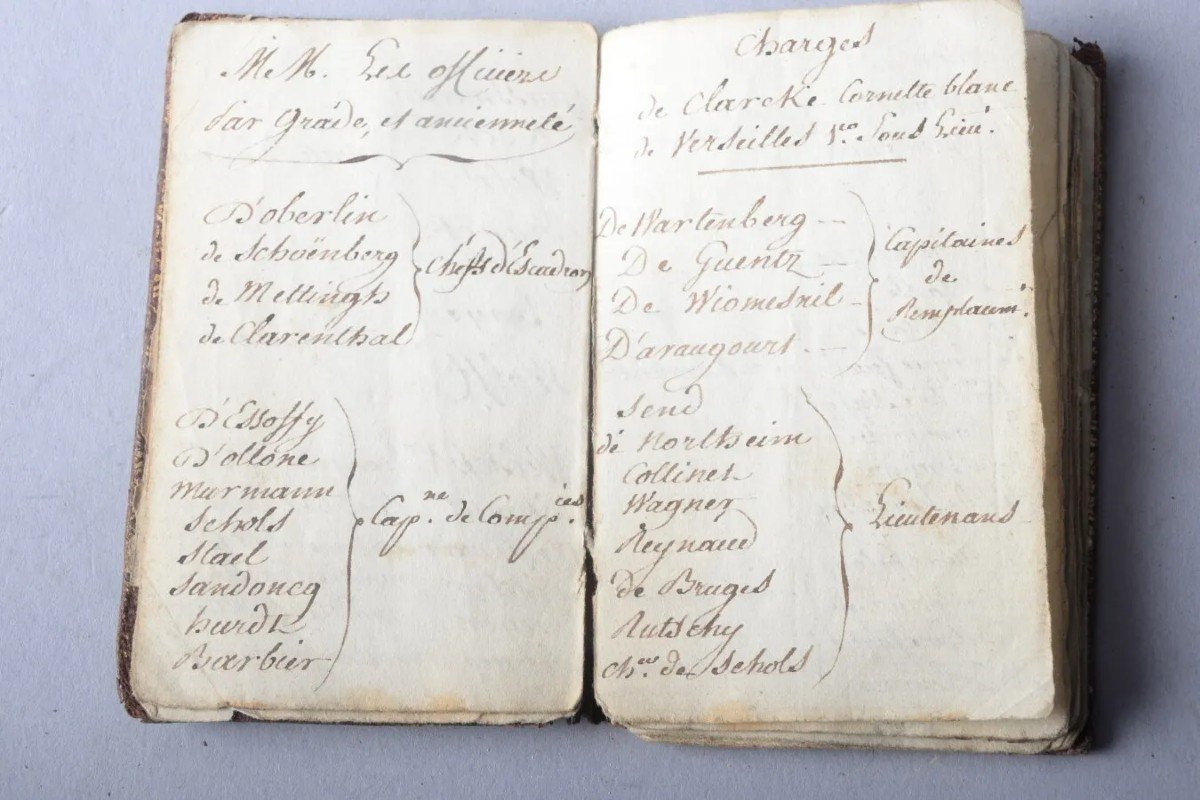 M.M. Les officiers
Par Gráde, et ancienneté
D'oberlin
de Schoënberg
de Mettingh
de Clarenthal
Chefs d'Escadron
D'Essoffy
D'ollone
Murmann
Schols
Stael
Sandoncq
hurdt
Barbier
Cap.ne de Comp.ies
Charges
de Clarcke Cornette blanc
de Verseilles 1.er Sous Lieu.t
De Wartenberg --
De Guentz --
De Wiomesnil -
D'araugourt. --
Capitaines
de
Remplacem.t
Send
de Northeim
Collinet
Wagner
Reynaud
De Bruges
Rutschy
Ch.er de Schols
Lieutenans